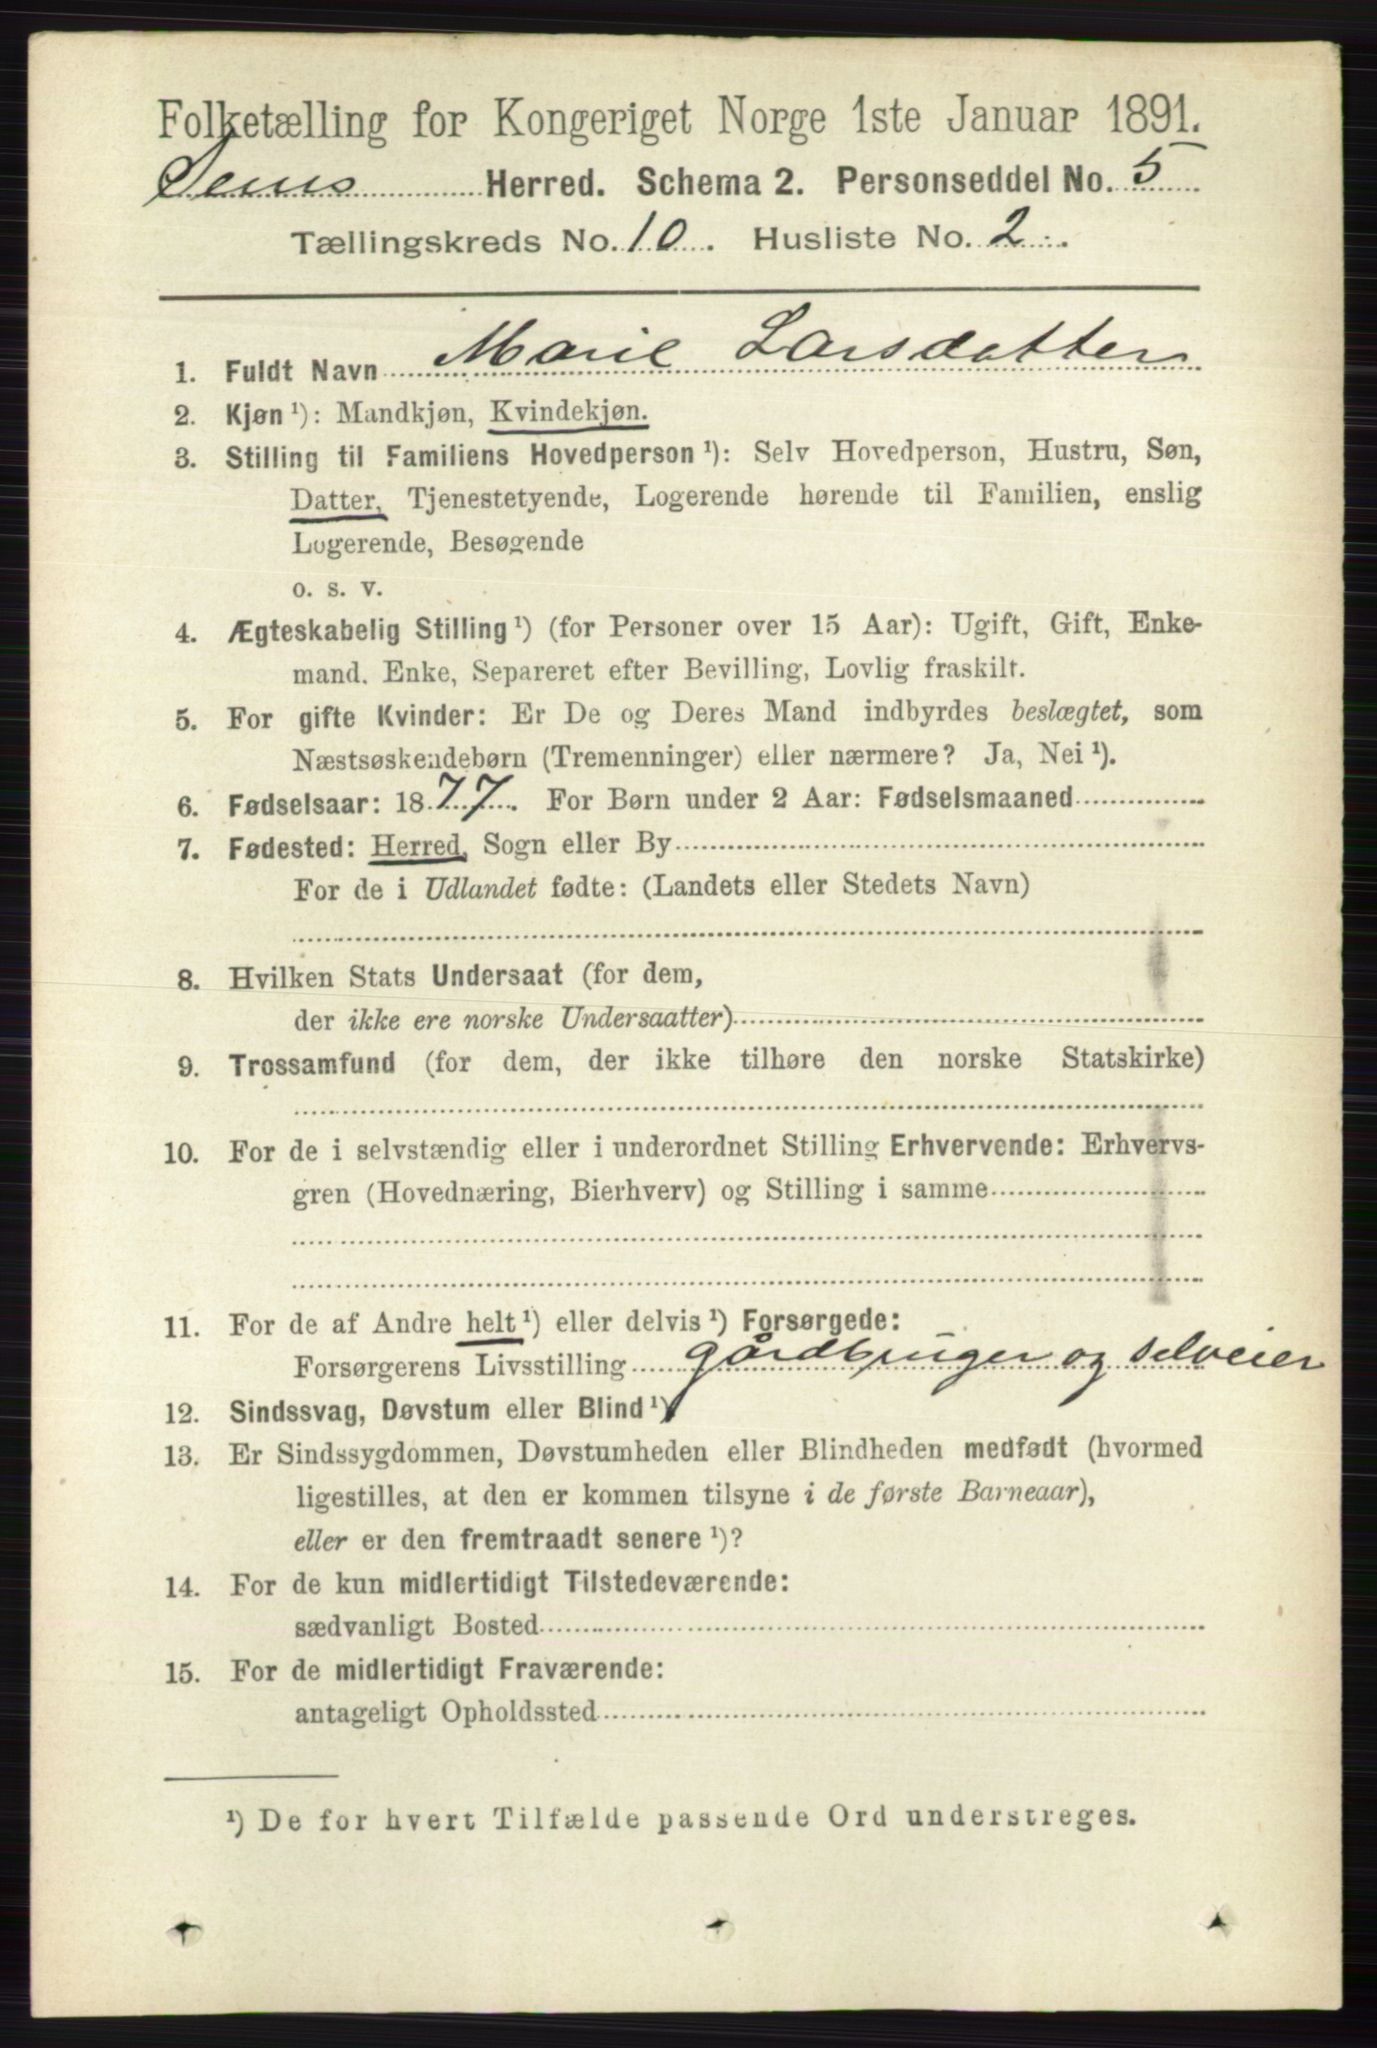 Folketælling for Kongeriget Norge 1ste Januar 1891.
Sems Herred. Schema 2. Personseddel No. 5
Tællingskreds No. 10. Husliste No. 2.
1. Fuldt Navn Marie Larsdatter
2. Kjøn ¹): Mandkjøn, Kvindekjøn.
3. Stilling til Familiens Hovedperson ¹): Selv Hovedperson, Hustru, Søn,
Datter, Tjenestetyende, Logerende hørende til Familien, enslig
Logerende, Besøgende
o. s. v.
4. Ægteskabelig Stilling ¹) (for Personer over 15 Aar): Ugift, Gift, Enke-
mand. Enke, Separeret efter Bevilling, Lovlig fraskilt.
5. For gifte Kvinder: Er De og Deres Mand indbyrdes beslægtet, som
Næstsøskendebørn (Tremenninger) eller nærmere? Ja, Nei ¹).
6. Fødselsaar: 1877. For Børn under 2 Aar: Fødselsmaaned
7. Fødested: Herred, Sogn eller By
For de i Udlandet fødte: (Landets eller Stedets Navn)
8. Hvilken Stats Undersaat (for dem,
der ikke ere norske Undersaatter)
9. Trossamfund (for dem, der ikke tilhøre den norske Statskirke)
10. For de i selvstændig eller i underordnet Stilling Erhvervende: Erhvervs-
gren (Hovednæring, Bierhverv) og Stilling i samme
11. For de af Andre helt ¹) eller delvis ¹) Forsørgede:
Forsørgerens Livsstilling gårdbruger og selveier
12. Sindssvag, Døvstum eller Blind ¹)
13. Er Sindssygdommen, Døvstumheden eller Blindheden medfødt (hvormed
ligestilles, at den er kommen tilsyne i de første Barneaar),
eller er den fremtraadt senere ¹)?
14. For de kun midlertidigt Tilstedeværende:
sædvanligt Bosted
15. For de midlertidigt Fraværende:
antageligt Opholdssted
¹) De for hvert Tilfælde passende Ord understreges.